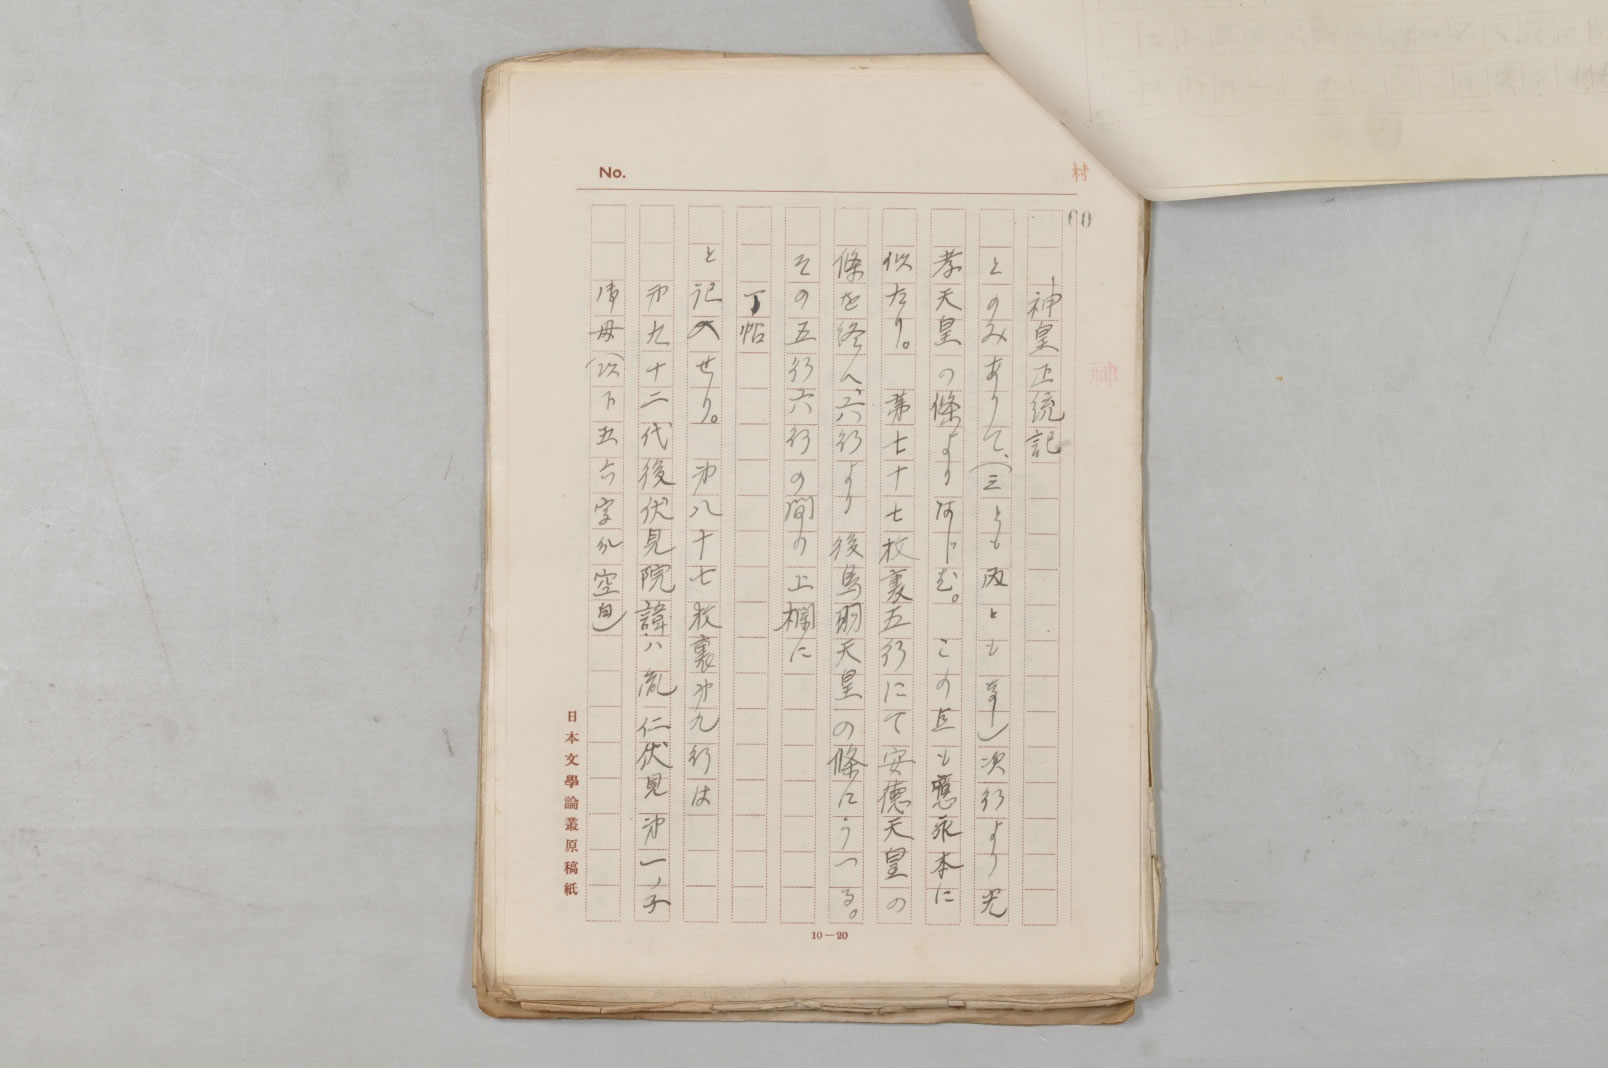 No.
村
60
神
神皇正統記
とのみありて、(三とも丙ともなし)次行より光
孝天皇の條より加下む。この点も應永本に
似たり。 第七十七枚裏五行にて安徳天皇の
條を終へ、六行より後鳥羽天皇の條にうつる。
その五行六行の間の上欄に
丁帖
と記入せり。 第八十七枚裏第九行は
第九十二代後伏見院諱ハ胤仁伏見第一ノ子
御母(以下五六字分空白)
日本文學論叢原稿紙
10—20